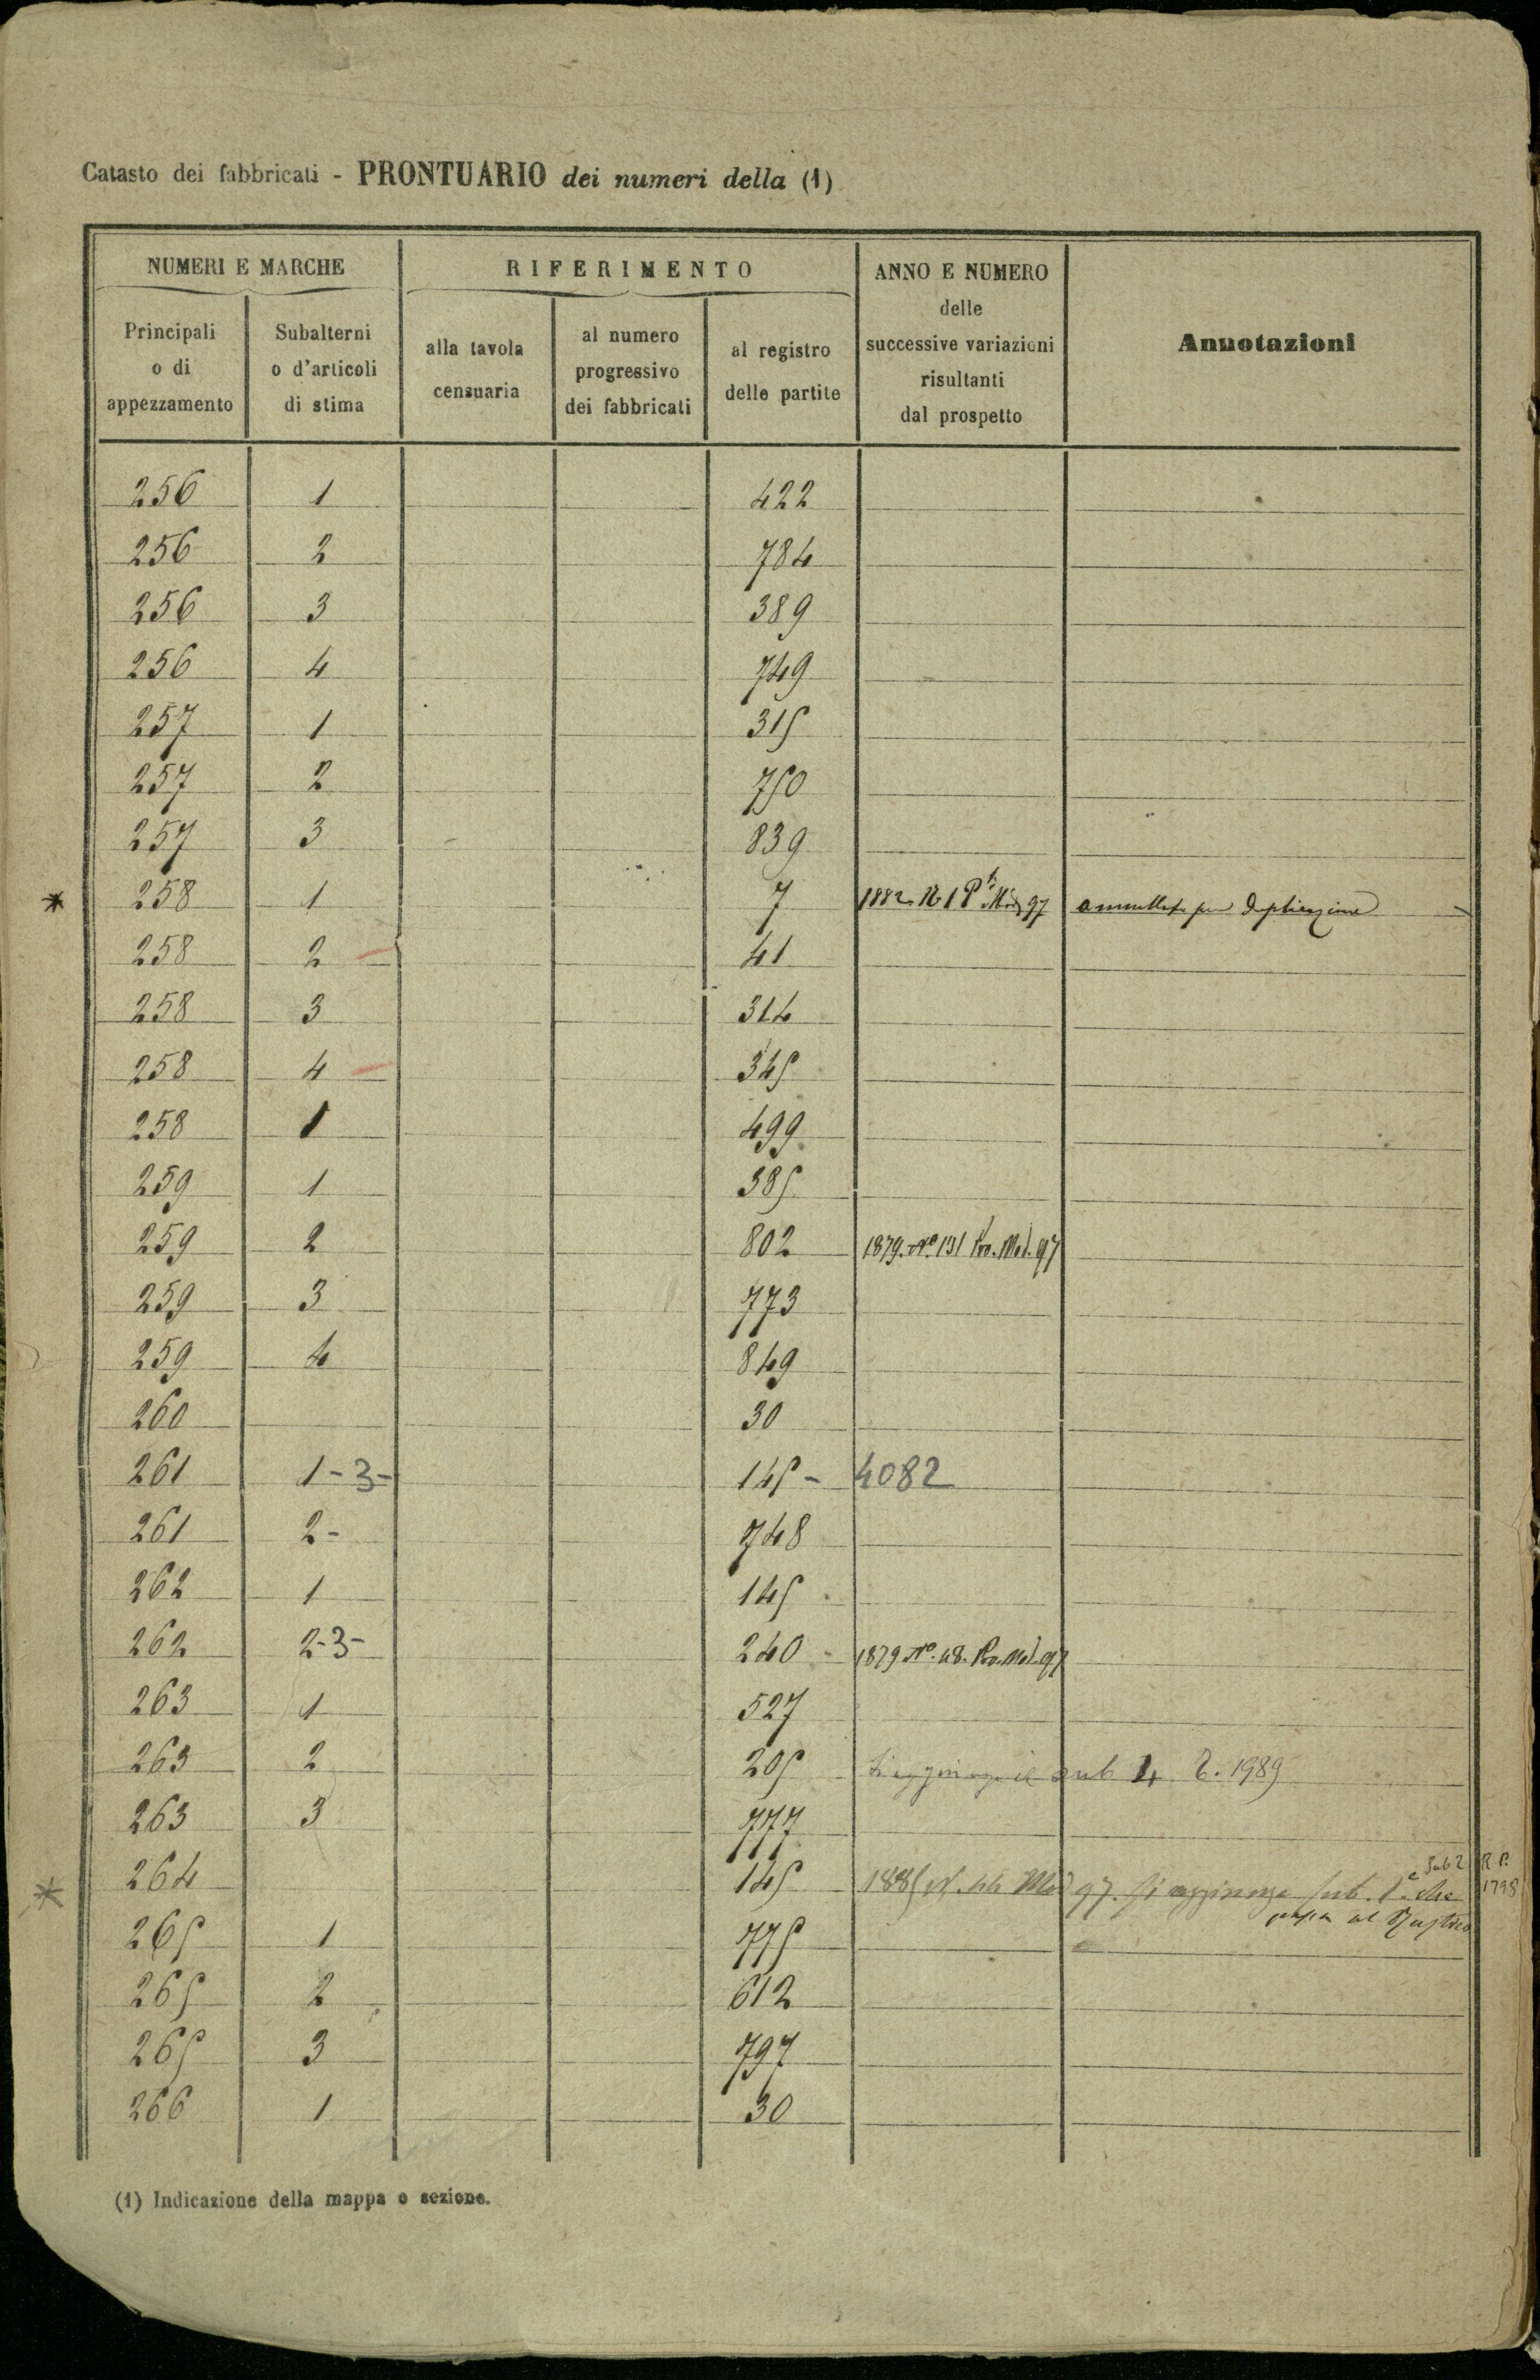 Catasto dei fabbricati - PRONTUARIO dei numeri della (1)
NUMERI E MARCHE
RIFERIMENTO
ANNO E NUMERO
delle
successive variazioni
risultanti
dal prospetto
Annotazioni
Principali
o di
appezzamento
Subalterni
o d'articoli
di stima
alla tavola
censuaria
al numero
progressivo
dei fabbricati
al registro
delle partite
256 1 422
256 2 784
256 3 389
256 4 749
257 1 315
257 2 750
257 3 839
* 258 1 7 1882 N. 1 Mod 97 annullata per duplicazione
258 2 41
258 3 314
258 4 345
258 1 499
259 1 385
259 2 802 1879. N° 131 Pro. Mod. 97
259 3 773
259 4 849
260 30
261 1-3- 145 - 4082
261 2- 748
262 1 145
262 2-3- 240 - 1879 N°. 48. Pro. Mod. 97
263 1 527
263 2 205 si aggiunge il sub 4 1989
263 3 777
Sub 2 R P.
* 264 145 1885 N. 44 Mod 97. si aggiunge sub. 1° che 1798
passa al Rustico
265 1 775
265 2 612
265 3 797
266 1 30
(1) Indicazione della mappa o sezione.